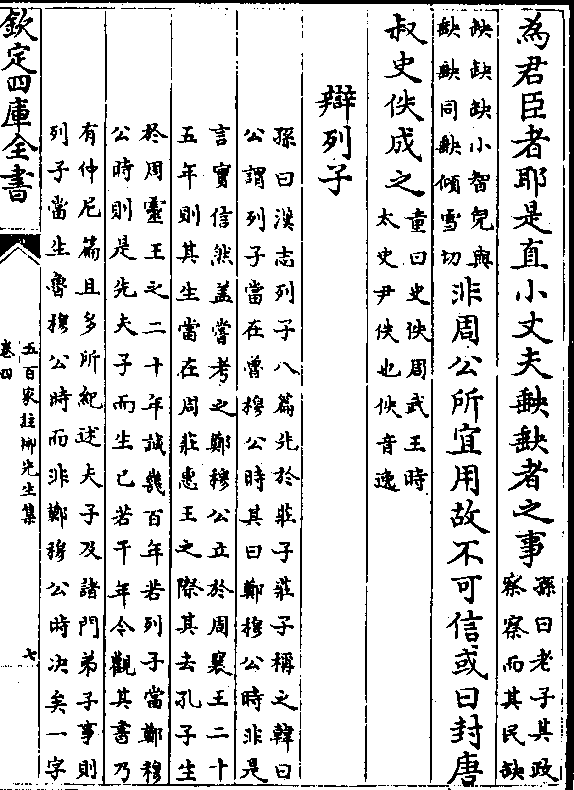 為君臣者耶是直小丈夫𡙇𡙇者之事孫曰老子其政
察察而其民缺
缺缺缺小智皃與
𡙇𡙇同𡙇傾雪切非周公所宜用故不可信或曰封唐
叔史佚成之童曰史佚周武王時
太史尹佚也佚音逸
辯列子
孫曰漢志列子八篇先於莊子莊子稱之韓曰
公謂列子當在魯穆公時其曰鄭穆公時非是
言實信然盖嘗考之鄭穆公立於周襄王二十
五年則其生當在周莊惠王之際其去孔子生
於周靈王之二十年誠幾百年若列子當鄭穆
公時則是先夫子而生已若干年今觀其書乃
有仲尼篇且多所紀述夫子及諸門弟子事則
列子當生魯穆公時而非鄭穆公時决矣一字
欽定四庫全書
五百家註栁先生集
卷四
七